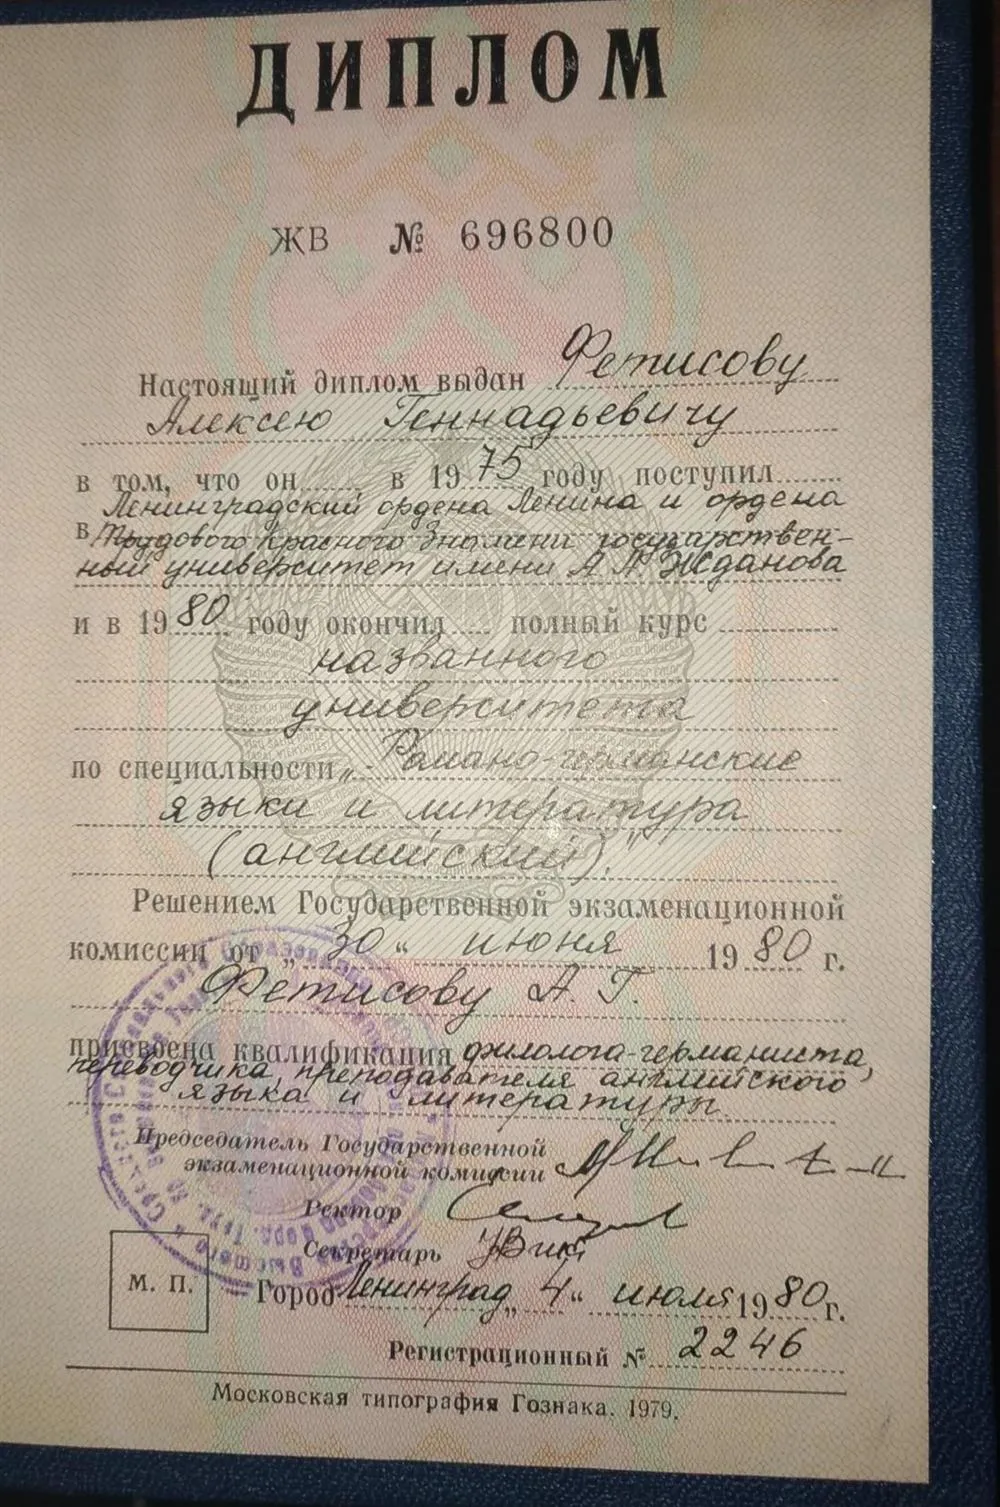 ДИПЛОМ
ЖВ № 696800
Настоящий диплом выдан Фетисову
Алексею Геннадьевичу
в том, что он в 1975 году поступил
Ленинградский ордена Ленина и ордена
в Трудового Красного Знамени государствен-
ный университет имени А А Жданова
и в 1980 году окончил полный курс
названного
университета
по специальности „Романо-германские
языки и литература
(английский)."
Решением Государственной экзаменационной
комиссии от „30“ июня 1980 г.
Фетисову А. Г.
присвоена квалификация филолога-германиста,
переводчика, преподавателя английского
языка и литературы
Председатель Государственной
экзаменационной комиссии
Ректор
Секретарь
М. П.
Город Ленинград „4“ июля 1980 г.
Регистрационный № 2246
Московская типография Гознака. 1979.